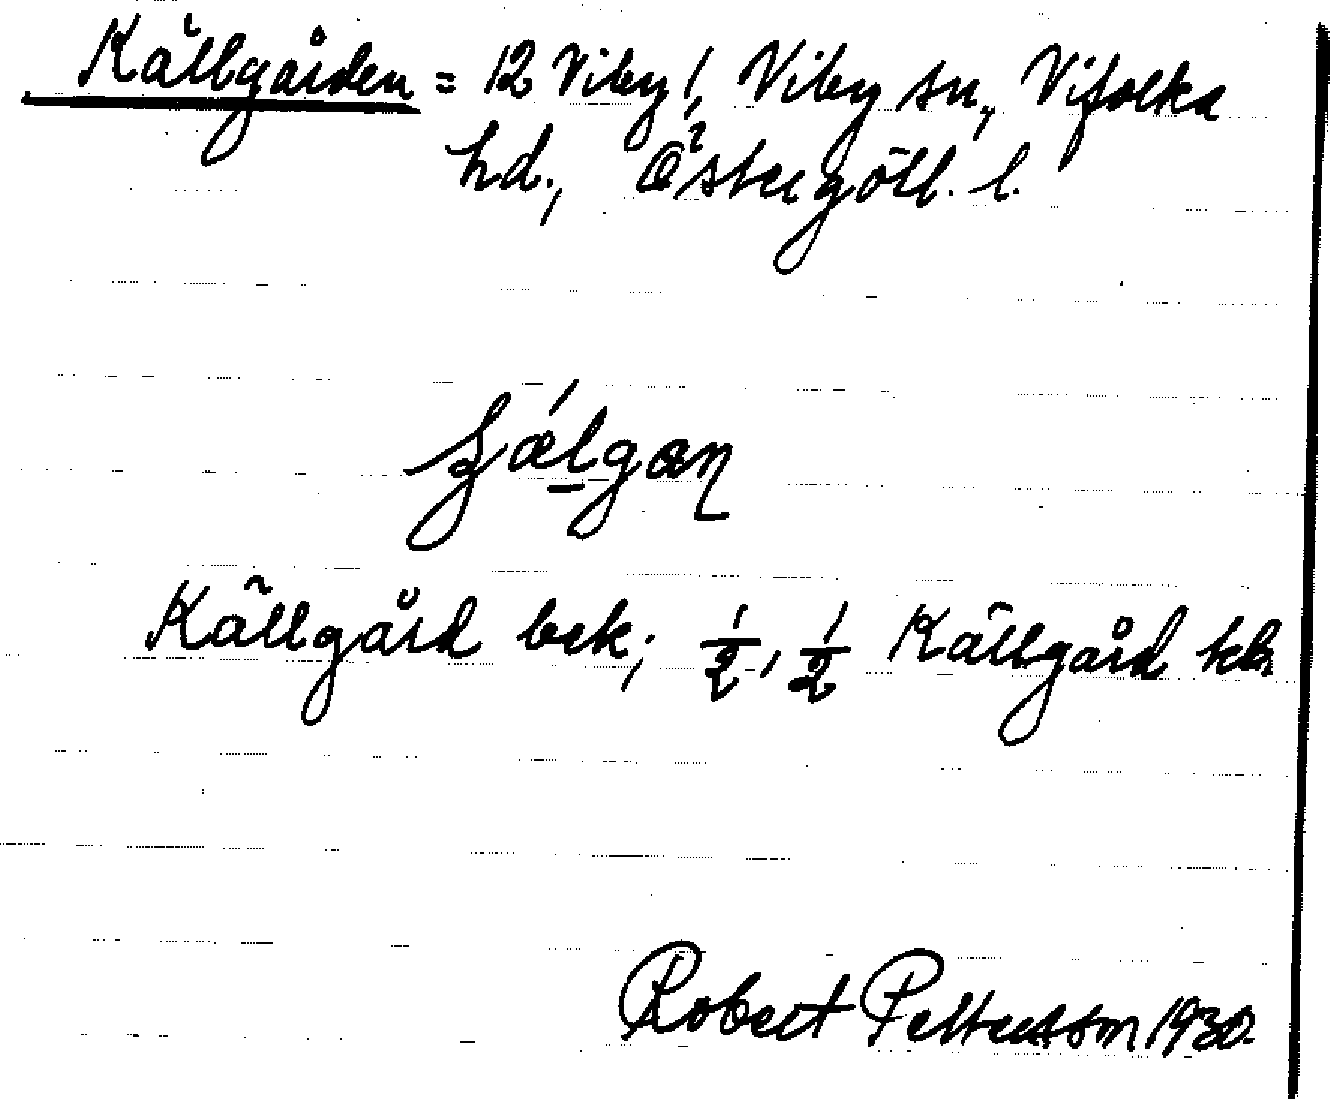 Källgården = 12 Viby!, Viby sn, Vifolka
hd., Östergötl. l.
Källgård bek; 1/2, 1/2 Källgård kb
Robert Pettersson 1930.